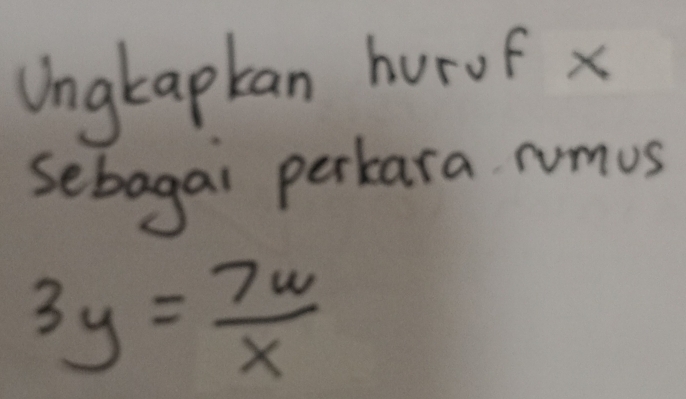 Ungkapkan huruf x
sebagai perkara rumus
3y = 7w/x